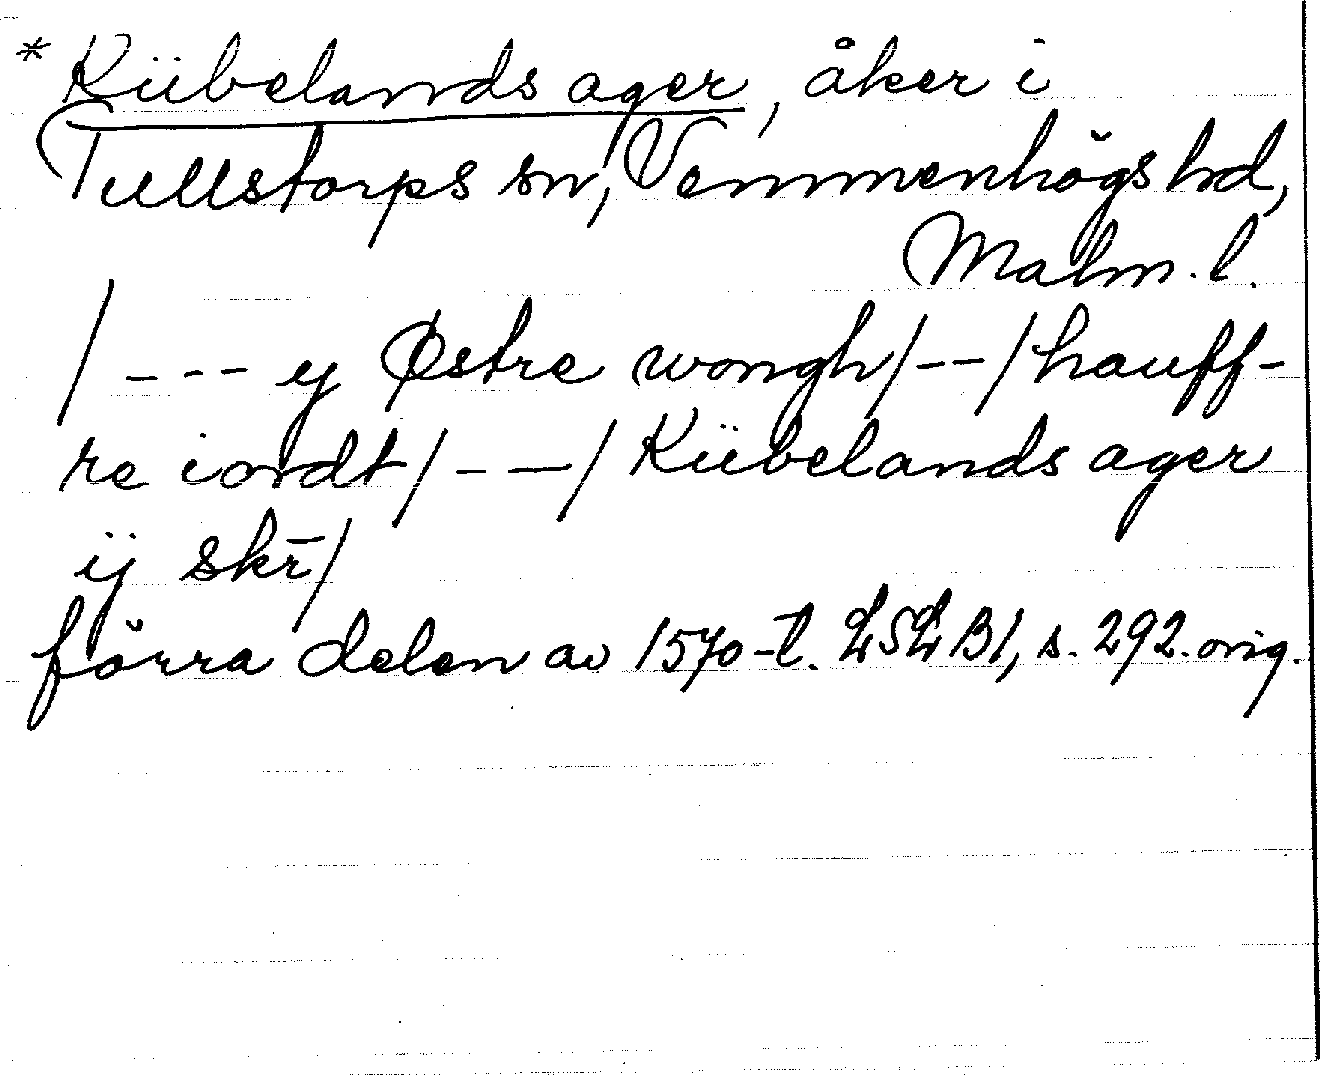 * Kübelands ager, åker i
Tullstorps sn, Vemmenhögs hd,
Malm. l.
/ --- y Østre wongh/--/hauff-
re iordt/--/Kübelands ager
ij skr̄/
förra delen av 1570-t. LSLB1, s. 292. orig.